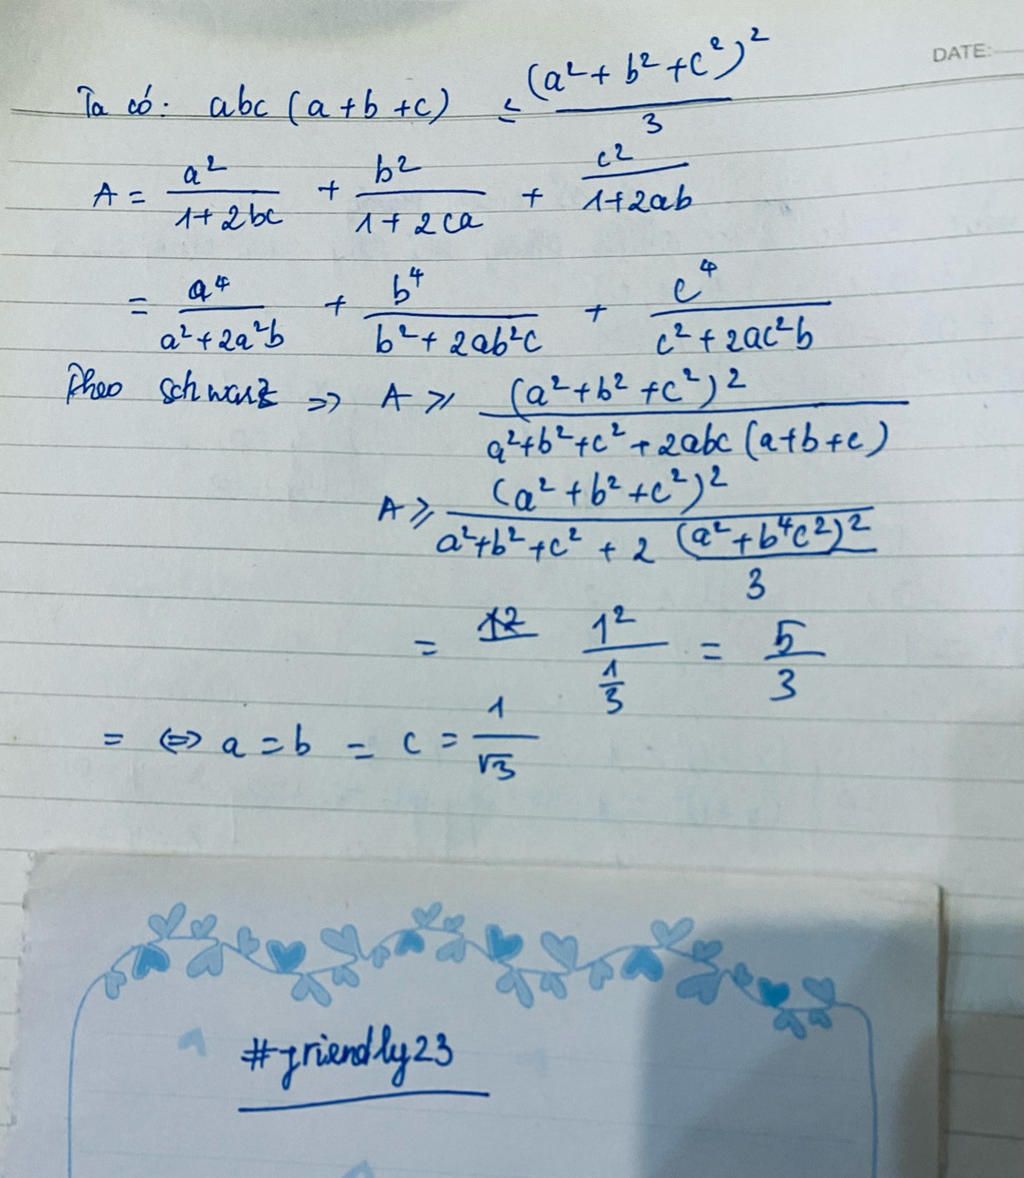 DATE:
Ta có: abc (a+b+c) ≤ (a²+b²+c²)²/3
A = a²/(1+2bc) + b²/(1+2ca) + c²/(1+2ab)
= a⁴/(a²+2a²b) + b⁴/(b²+2ab²c) + c⁴/(c²+2ac²b)
Theo Schwarz => A ≥ (a²+b²+c²)²/(a²+b²+c²+2abc(a+b+c))
A ≥ (a²+b²+c²)²/(a²+b²+c²+2 (a²+b⁴c²)²/3)
= 1²/(1/3) = 5/3
= <=> a = b = c = 1/√3
#friendly23